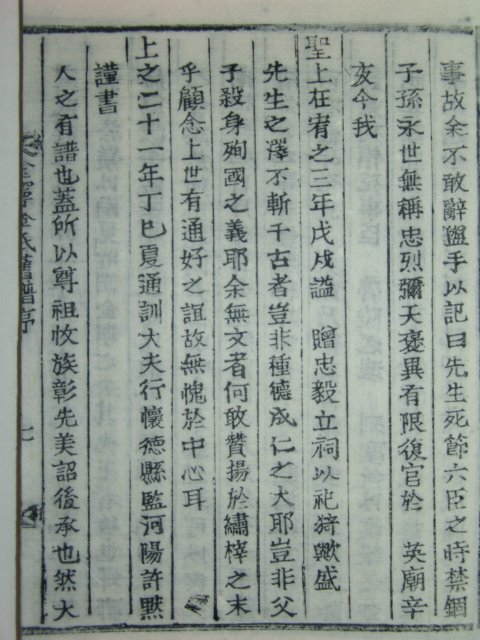 事故余不敢辭盥手以記曰先生死節六臣之時禁錮
子孫永世無稱忠烈彌天褒異有限復官於 英廟辛
亥今我
聖上在宥之三年戊戌謚 贈忠毅立祠以祀猗歟盛
先生之澤不斬千古者豈非種德成仁之大耶豈非父
子殺身殉國之義耶余無文者何敢贊揚於繡梓之末
乎顧念上世有通好之誼故無愧於中心耳
上之二十一年丁巳夏通訓大夫行懷德縣監河陽許㸃
謹書
人之有譜也蓋所以尊祖收族彰先美詔後承也然大
金氏舊譜序
七